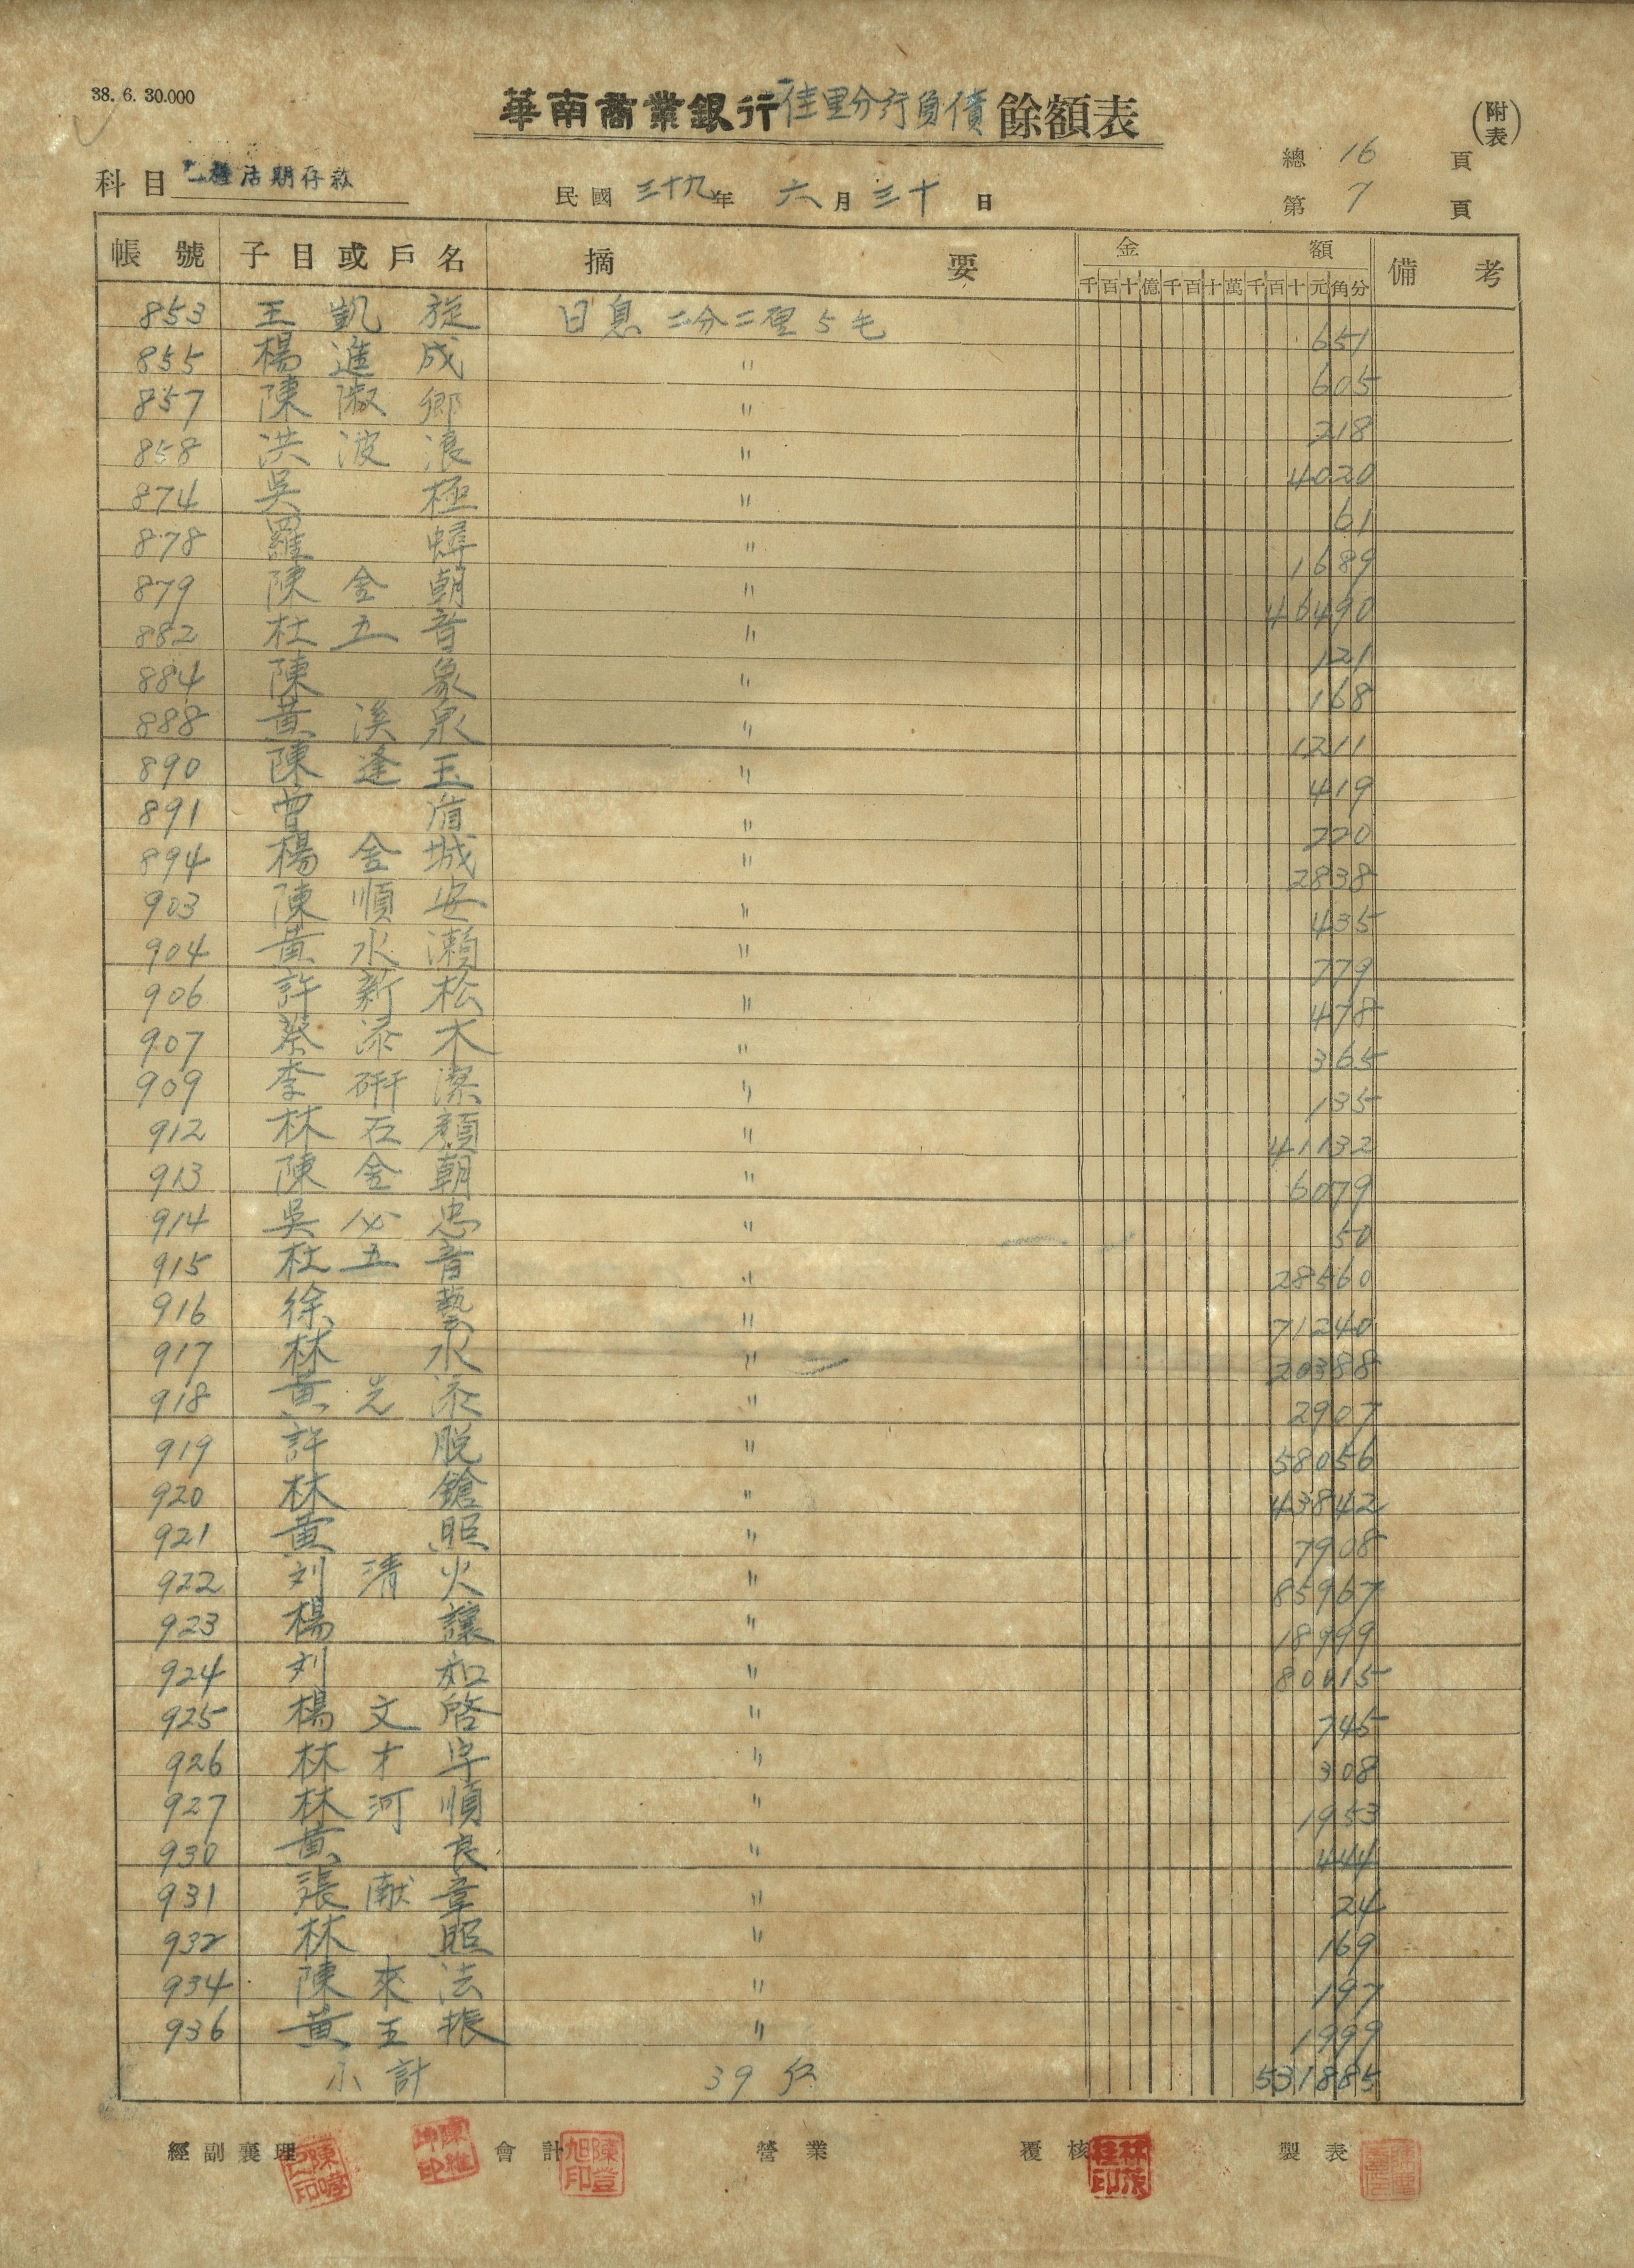 38. 6. 30.000
華南商業銀行佳里分行負債餘額表
(附表)
總 16 頁
科目 乙種活期存款
民國 三十九年 六月 三十日
第 7 頁
帳號 子目或戶名 摘要 金額 備考
千百十億千百十萬千百十元角分
853 王凱旋 日息二分二厘5毛 651
855 楊進成 〃 605
857 陳淑鄉 〃 218
858 洪波浪 〃 4020
874 吳極 〃 61
878 羅蟳 〃 1689
879 陳金朝 〃 46490
882 杜五音 〃 121
884 陳象 〃 168
888 黃溪泉 〃 1211
890 陳逢玉 〃 419
891 曾 〃 220
894 楊金城 〃 2838
903 陳順安 〃 435
904 黃水瀨 〃 779
906 許新松 〃 478
907 蔡添木 〃 365
909 李研潔 〃 135
912 林石顏 〃 41132
913 陳金朝 〃 6079
914 吳必忠 〃 50
915 杜五音 〃 28560
916 徐藝 〃 71240
917 林水 〃 20388
918 黃光添 〃 2907
919 許脫 〃 58056
920 林鎗 〃 43842
921 黃照 〃 7908
922 刘清火 〃 85967
923 楊讓 〃 18999
924 刘如 〃 80015
925 楊文啓 〃 745
926 林才字 〃 308
927 林河順 〃 1953
930 黃良 〃 444
931 張献章 〃 24
932 林照 〃 169
934 陳來法 〃 197
936 黃玉振 〃 1999
小計 39 531885
經副襄理 會計 營業 覆核 製表
陳登旭印
林茂桂印